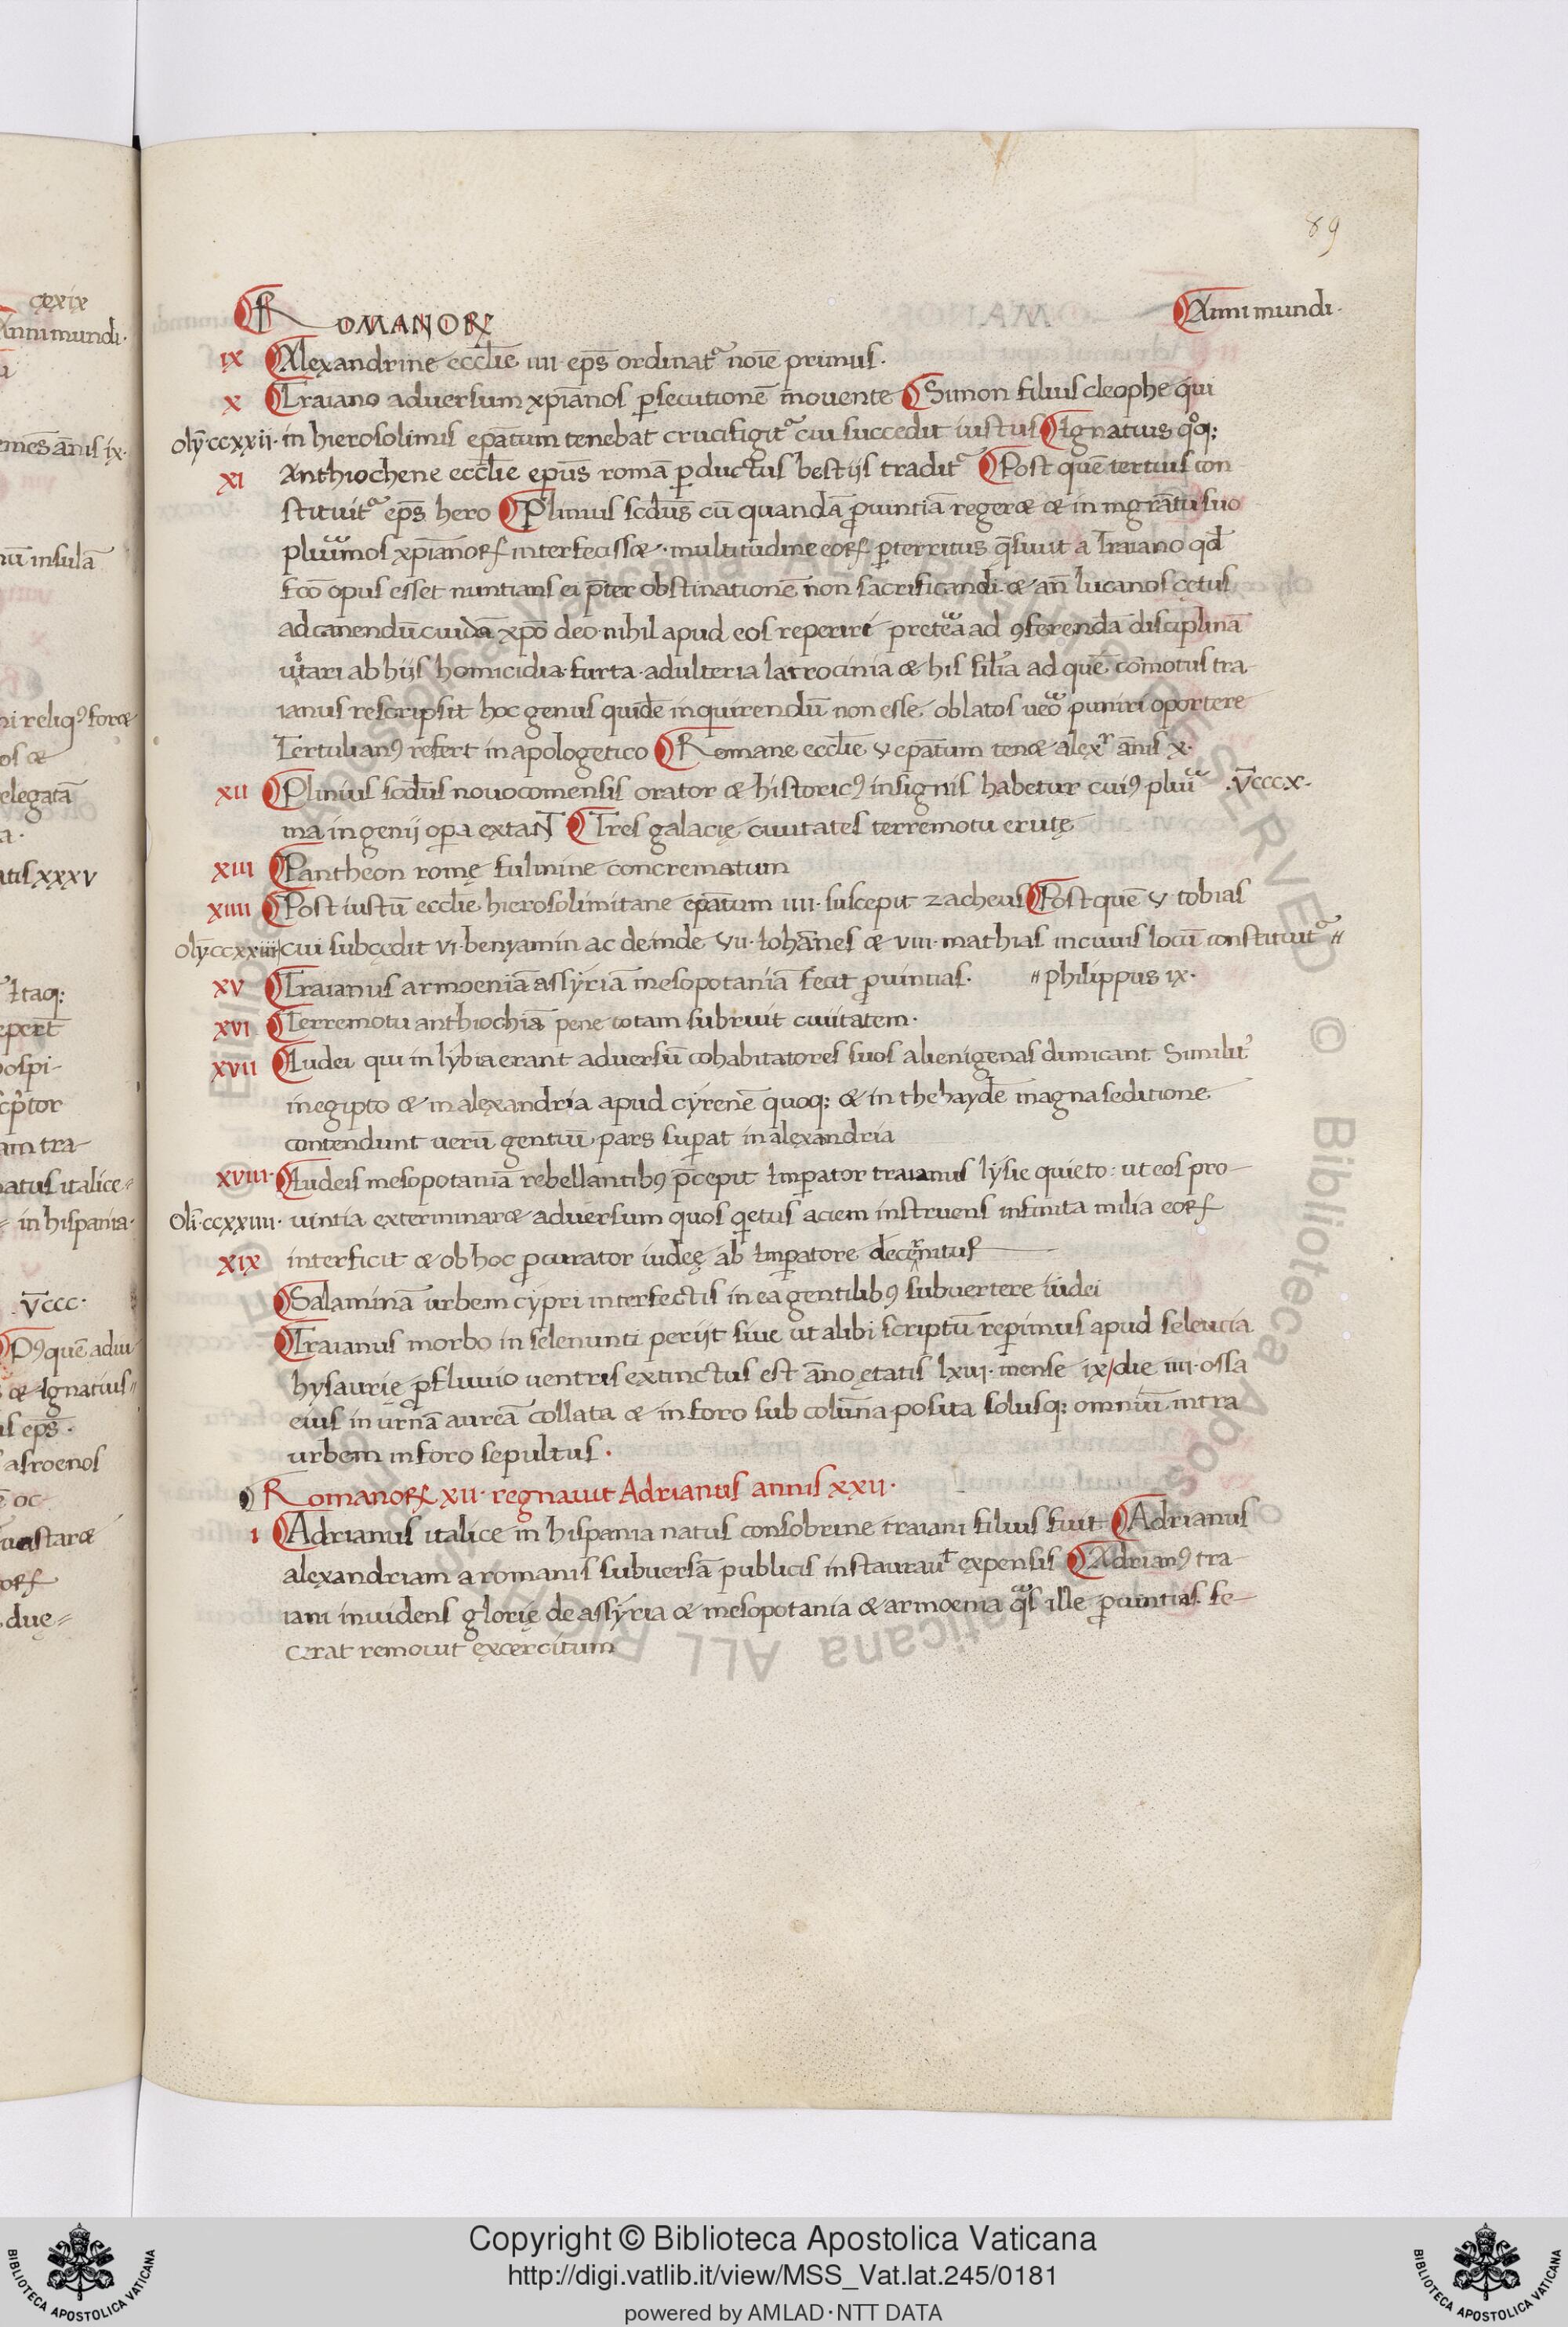 89
ROMANORꝜ Anni mundi·
ix Alexandrine eccl̄ie iiii eps̄ ordinat᷑ noīe primus·
x Traiano adversum xp̄ianos ꝑsecutionē movente Simon filius cleophe qui
olȳ·ccxxii· in hierosolimis epatum tenebat crucifigit᷑ cui succedit iustus Ignatius qͦq;
xi Anthiochene eccl̄ie ep̄us romā ꝑductus bestijs tradit᷑ Post quē tertius con
stituit᷑ eps̄ hero Plinius scd̄us cū quandā ꝓuintiā regeret et in mgrātu suo
plurimos xp̄ianorꝝ interfecisset· multitudine eorꝝ ꝑterritus q̄siuit a Traiano qd̄
fc̄o opus esset nuntians ei p̄ter obstinationē non sacrificandi· et an̄ lucanos cętus
ad canendū cuidā xp̄o deo nihil apud eos reperiri pretea ad ꝯferendā disciplinā
utari ab hijs homicidia· furta· adulteria latrocinia et his silia ad quē comotus tra
ianus rescripsit hoc genus quidē inquirendū non esse· oblatos ueo puniri oportere
Tertulianꝰ refert in apologetico Romane eccl̄ie v epatum tenet alexr̄ anis x·
xii Plinius scd̄us novocomensis orator et historicꝰ insignis habetur cuiꝰ plui ·V̄cccx·
ma ingenij oꝑa extaNT Tres galacię civitates terremotu erutę
xiii Pantheon romę fulmine concrematum
xiiii Post iustū eccl̄ie hierosolimitane epatum iiii· suscepit zacheus Post quē v tobias
olȳccxxiii cui subcędit vi·benyamin ac deinde vii·Iohānes et viii·mathias in cuius locū constituit᷑ //
xv Traianus armoeniā assyriā mesopotaniā fecit ꝓuintias· // philippus ix·
xvi Terremotu anthiochiā pene totam subruit civitatem·
xvii Iudei qui in lybia erant adversū cohabitatores suos alienigenas dimicant Similit̉
in egipto et in alexandria apud cyrenē quoq; et in thebaydē magna seditione
contendunt uerū gentiū pars suꝑat in alexandria
xviii· Iudeis mesopotaniā rebellantibꝰ p̄cepit Imꝑator traianus lysie quieto· ut eos pro
Oli·ccxxiiii· uintia exterminaret adversum quos qetus aciem instruens infinita milia eorꝝ
xix interficit et ob hoc ꝓcurator iudeę ab Imꝑatore decernitur
Salaminā urbem cypri interfectis in ea gentilibꝰ subvertere iudei
Traianus morbo in selenunti perijt sive ut alibi scriptū reꝑimus apud seleucia
hysaurię ꝓfluuio uentris extinctus est āno ętatis lxiii·mense ix/die iiii·ossa
eius in urnā aureā collata et in foro sub colūna posita solusq; omniū intra
urbem in foro sepultus·
Romanorꝝ xii· regnavit Adrianus annis xxii·
i Adrianus italice in hispania natus consobrine traiani filius fuit Adrianus
alexandriam a romanis subversā publicis instaurauᵗ expensis Adrianꝰ tra
iani invidens glorię de assyria et mesopotania et armoenia qas ille ꝓuintias fe
cerat removit excercitum
cęxix
Anni mundi·
anis ix·
insulā
reliqꝰ foret
os et
elegatā
xxxv
Itaq;
epert̄
ospi-
tor
am tra-
natus italice
in hispania·
V̄ccc·
Pꝰ quē
et Ignatius
eps̄·
asroenos
oc-
uastaret
duę
© Biblioteca Apostolica Vaticana ALL RIGHTS RESERVED
Copyright © Biblioteca Apostolica Vaticana
http://digi.vatlib.it/view/MSS_Vat.lat.245/0181
powered by AMLAD·NTT DATA
BIBLIOTECA APOSTOLICA VATICANA
BIBLIOTECA APOSTOLICA VATICANA